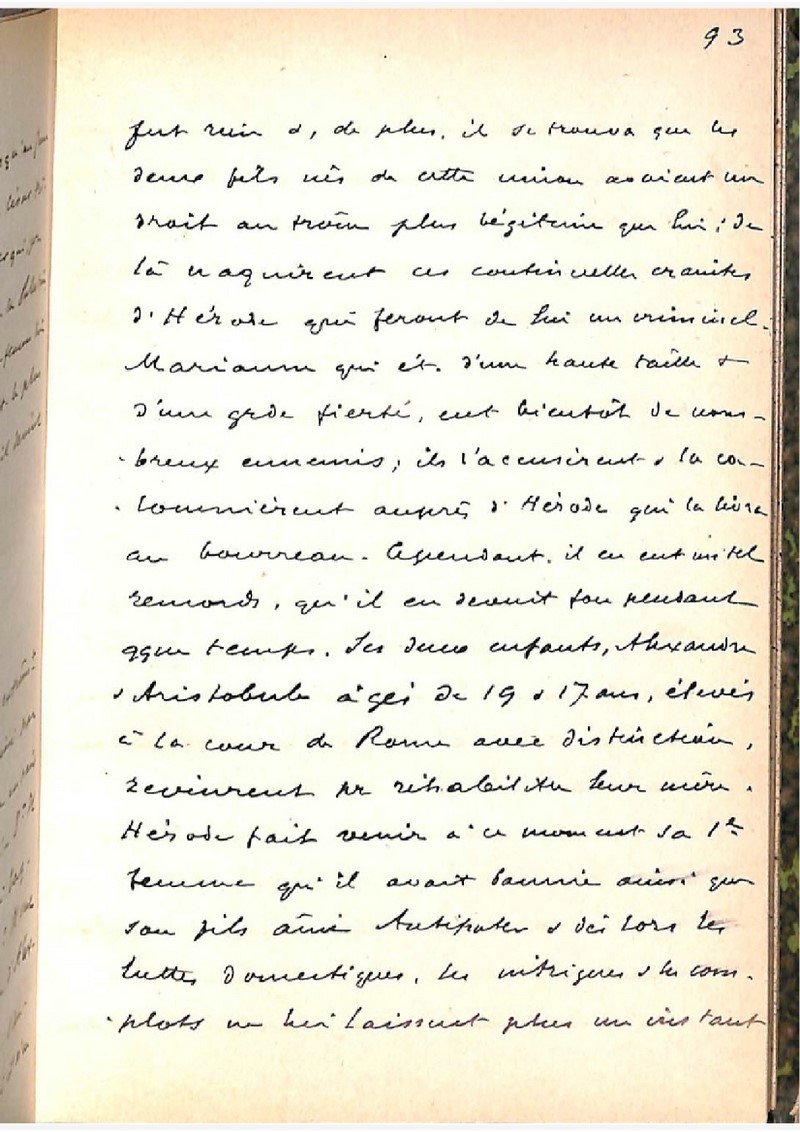 93
fut rien &, de plus, il se trouva que les
deux fils nés de cette union avaient un
droit au trône plus légitime que lui ; de
là naquirent ces continuelles craintes
d'Hérode qui feront de lui un criminel.
Mariamne qui ét. d'une haute taille &
d'une grde fierté, eut bientôt de nom-
breux ennemis ; ils l'accusèrent & la ca-
lomnièrent auprès d'Hérode qui la livra
au bourreau. Cependant, il en eut un tel
remords, qu'il en devint fou pendant
qque temps. Ses deux enfants, Alexandre
& Aristobule âgés de 19 & 17 ans, élevés
à la cour de Rome avec distinction,
revinrent pr réhabiliter leur mère.
Hérode fait venir à ce moment sa 1re
femme qu'il avait bannie ainsi que
son fils aîné Antipater & dès lors les
luttes domestiques, les intrigues & les com-
plots ne lui laissent plus un instant